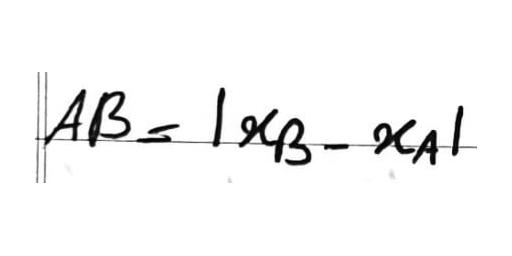 AB = |x_B - x_A|